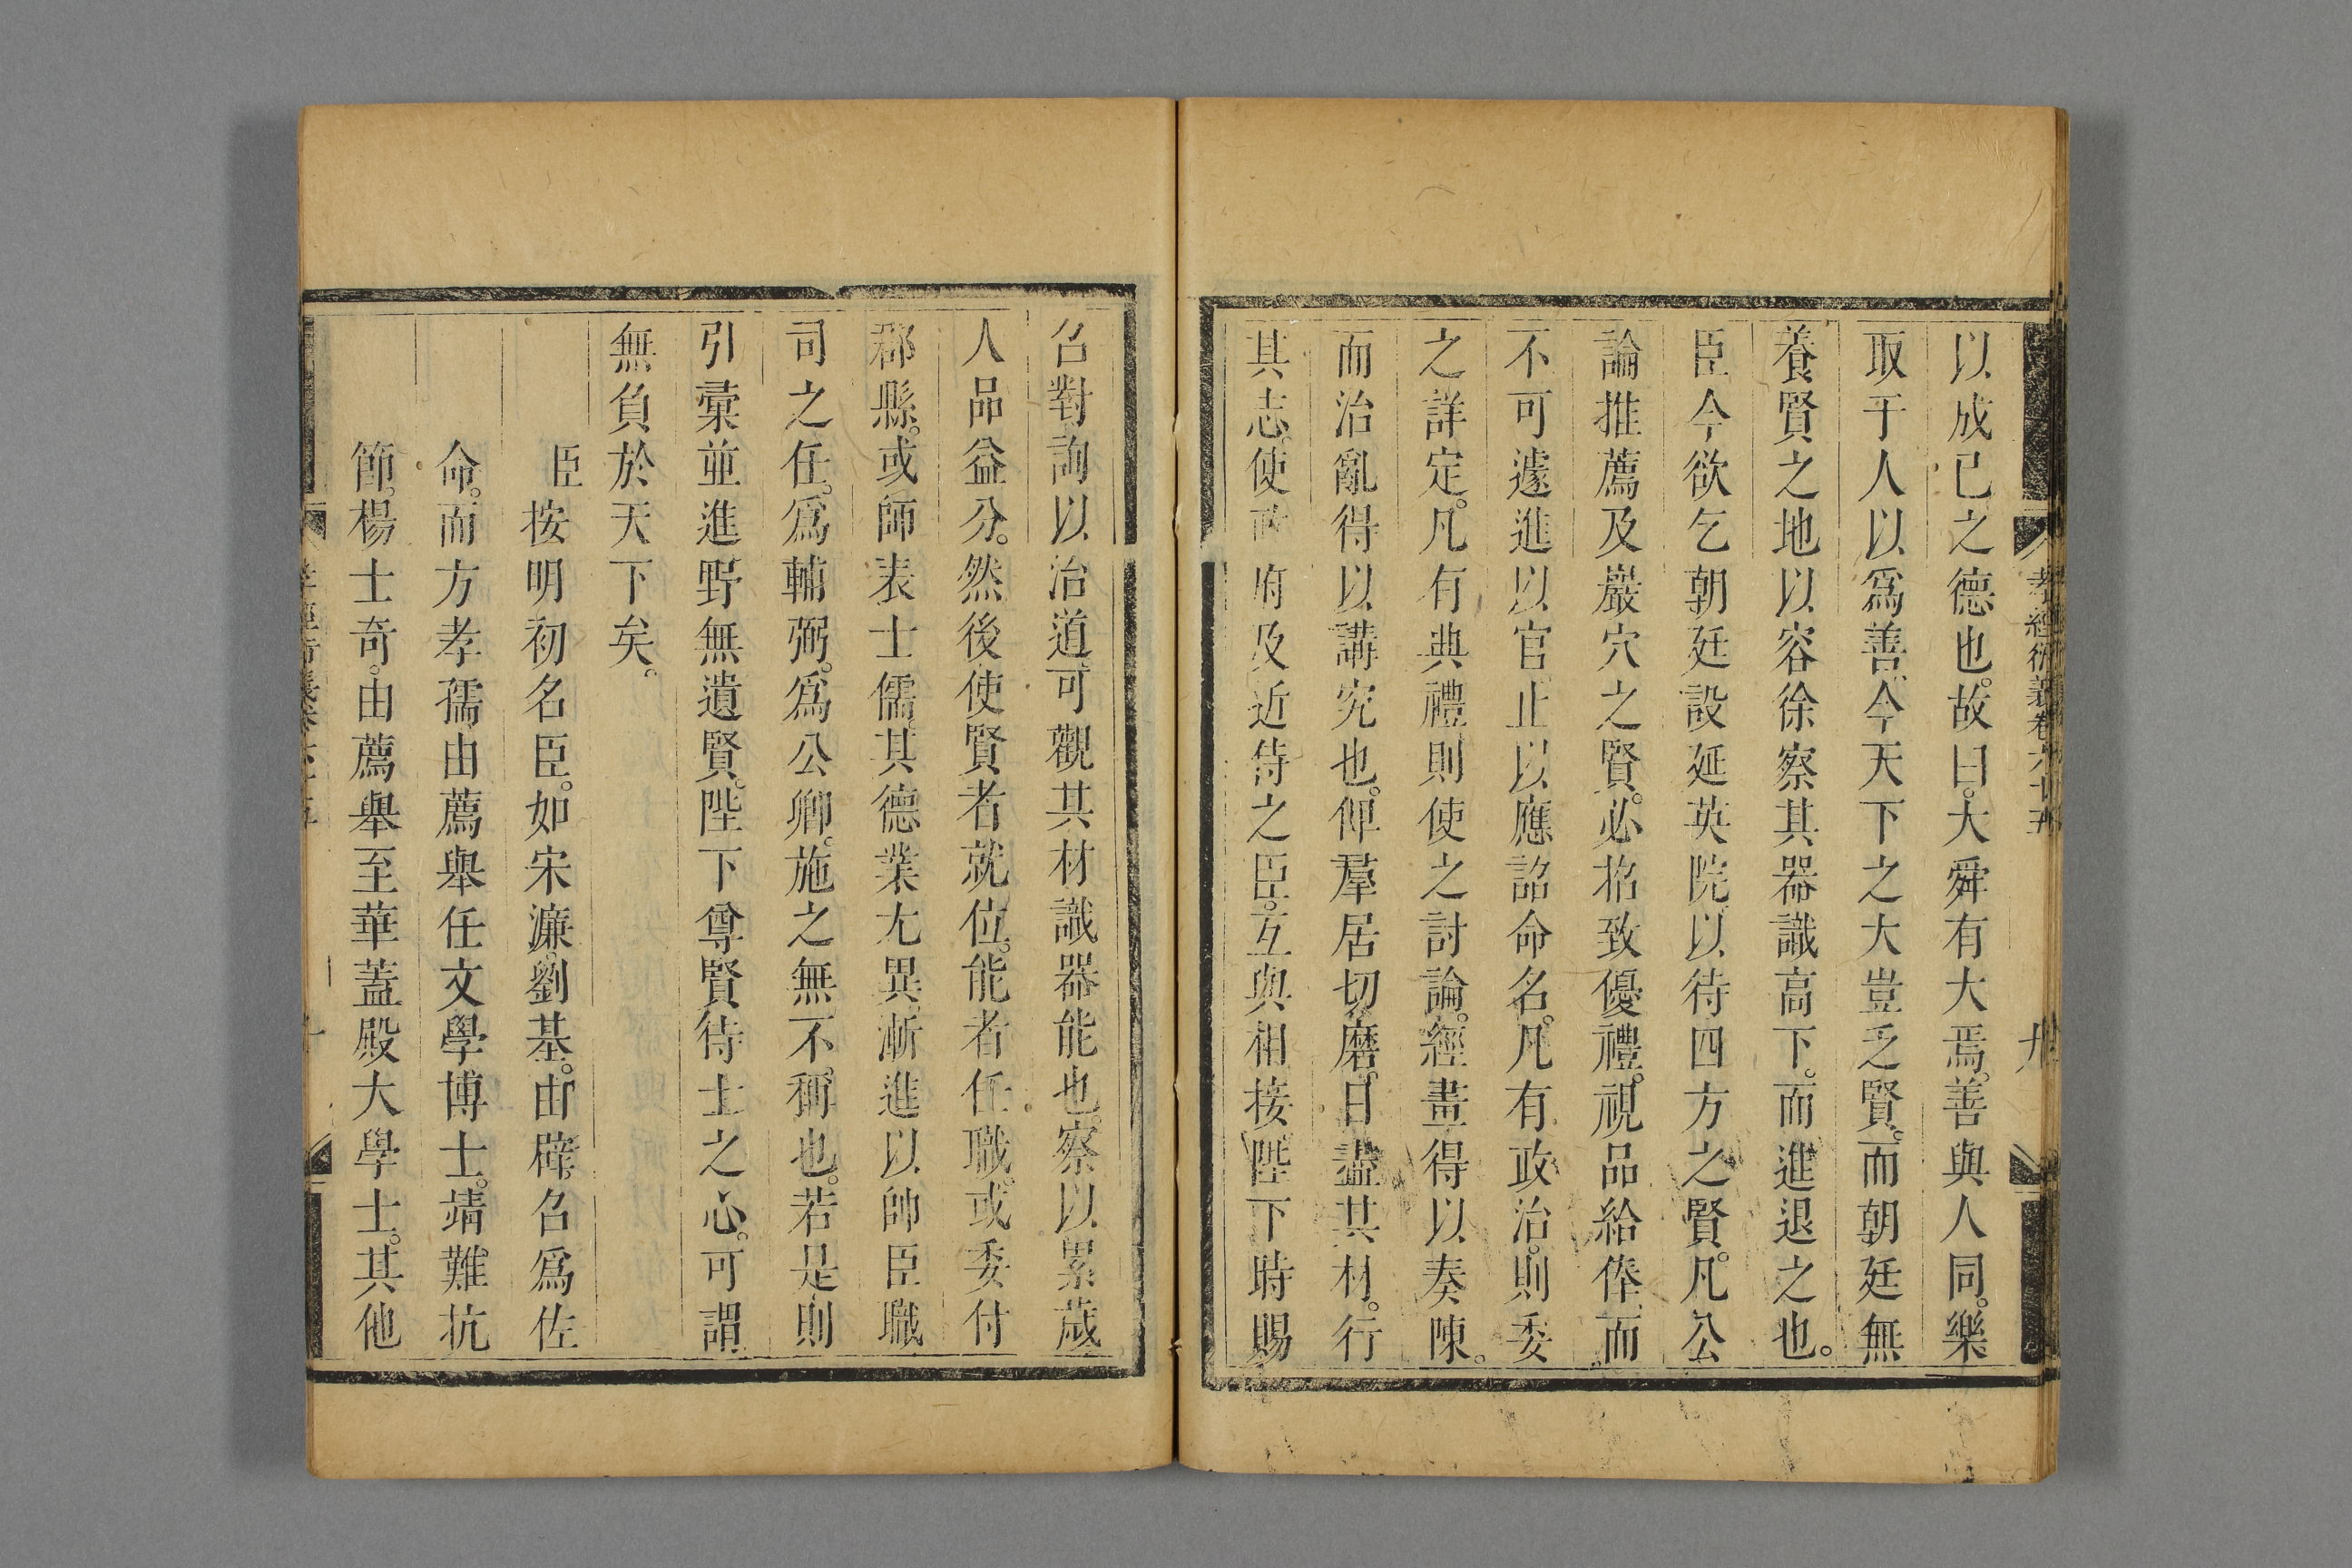 孝經衍義卷六十五
九
以成已之德也。故曰。大舜有大焉。善與人同。樂
取于人以爲善。今天下之大豈乏賢。而朝廷無
養賢之地以容徐察其器識高下。而進退之也。
臣今欲乞朝廷設延英院以待四方之賢。凡公
論推薦及巖穴之賢。必招致優禮。視品給俸。而
不可遽進以官。止以應詔命名。凡有政治。則委
之詳定。凡有典禮則使之討論。經畫得以奏陳。
而治亂得以講究也。俾羣居切磨。日盡其材。行
其志。使政府及近侍之臣。互與相接。陛下時賜
召對詢以治道。可觀其材識器能也。察以累歲
人品益分。然後使賢者就位。能者任職。或委付
郡縣。或師表士儒。其德業尤異漸進以帥臣職
司之任。爲輔弼。爲公卿。施之無不稱也。若是則
引彙並進野無遺賢。陛下尊賢待士之心。可謂
無負於天下矣。
臣按明初名臣。如宋濂。劉基。由辟召爲佐
命。而方孝孺由薦舉任文學博士。靖難抗
節。楊士奇。由薦舉至華蓋殿大學士。其他